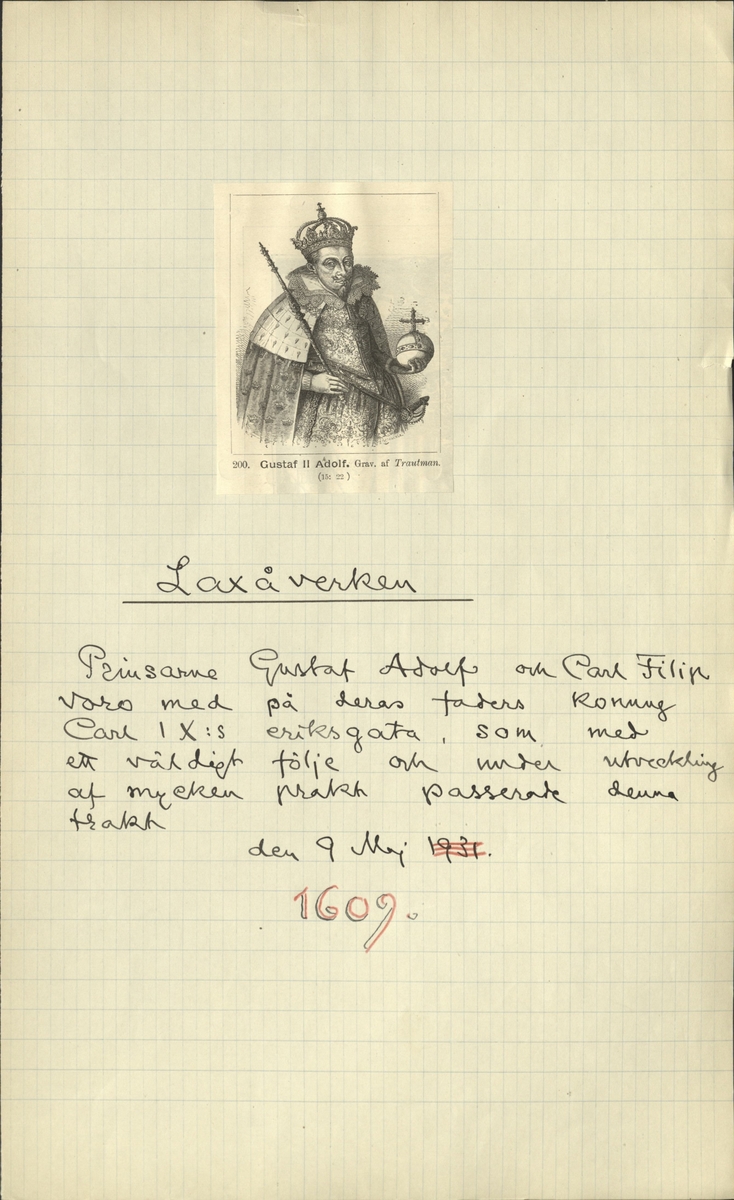 200. Gustaf II Adolf. Grav. af Trautman.
(15: 22)
Laxåverken
Prinsarne Gustaf Adolf och Carl Filip
voro med på deras faders konung
Carl IX:s eriksgata, som med
ett väldigt följe och under utveckling
af mycken prakt passerade denna
trakt
den 9 Maj 1931.
1609.